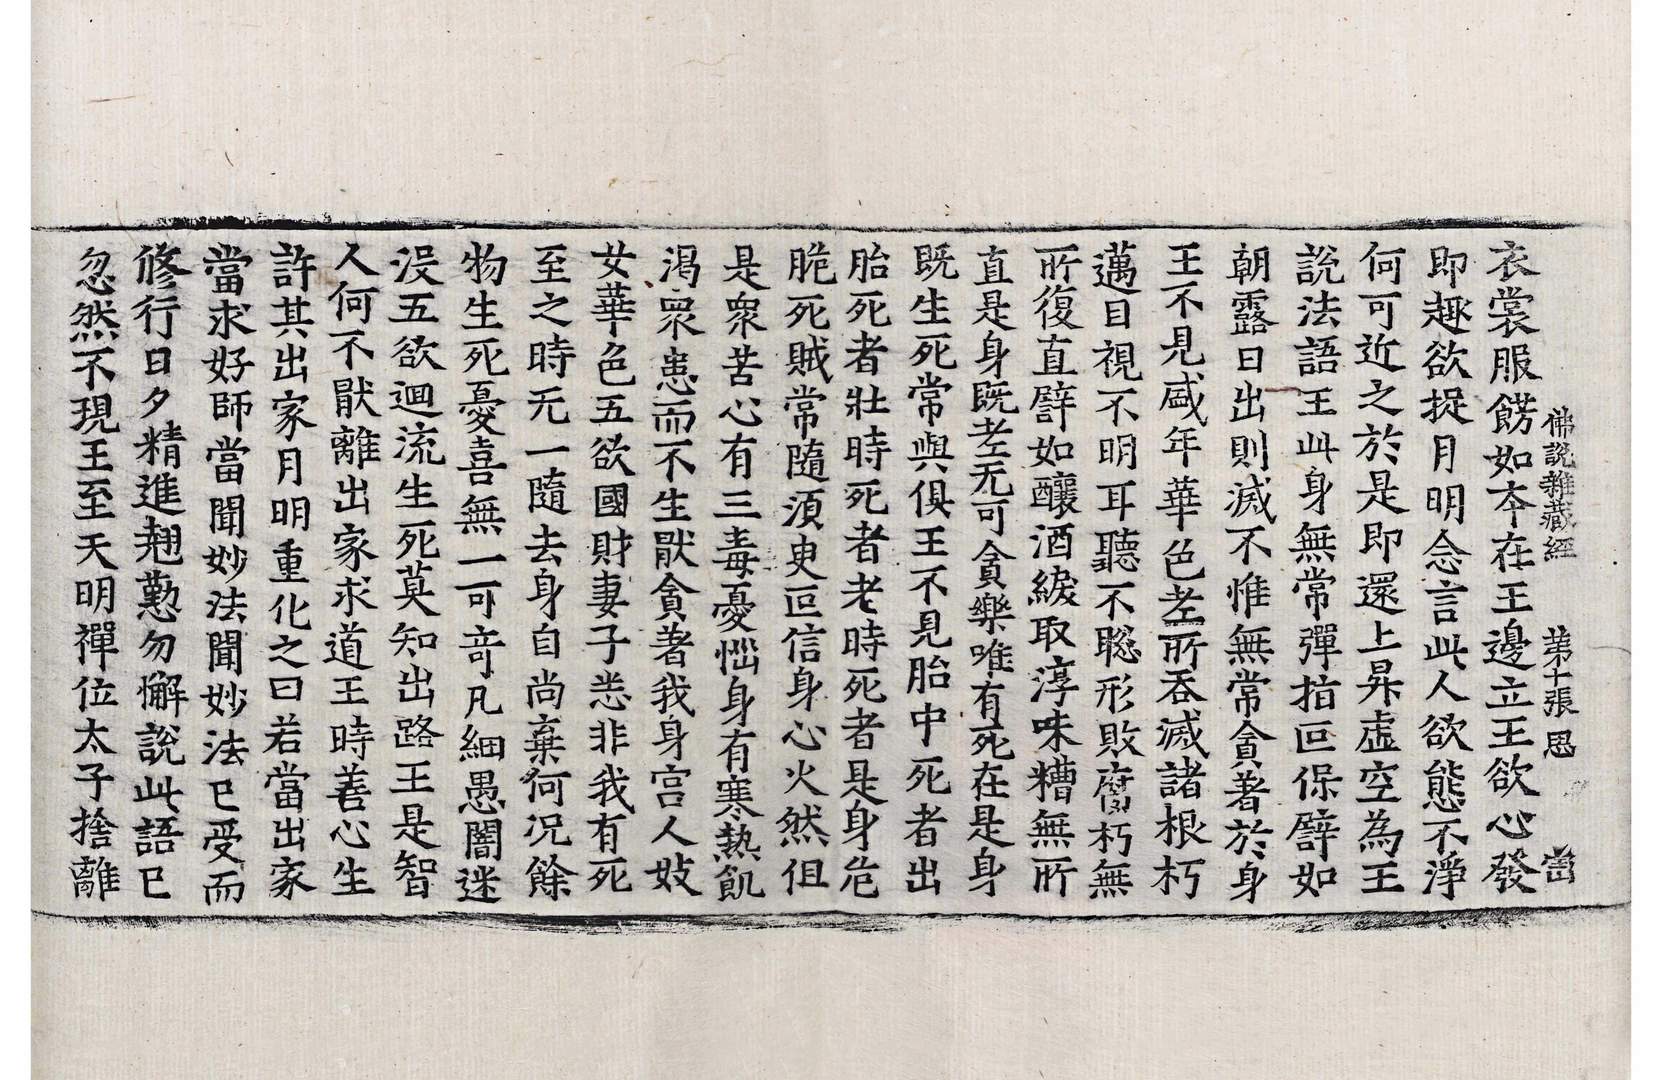 佛說雜藏經 第十張 思
衣裳服餝如夲在王邊立王欲心發
即趣欲捉月明念言此人欲態不淨
何可近之於是即還上昇虛空為王
說法語王此身無常彈指叵保譬如
朝露日出則滅不惟無常貪著於身
王不見盛年華色老所吞滅諸根朽
邁目視不明耳聽不聡形敗腐朽無
所復直譬如釀酒緩取淳味糟無所
直是身既老无可貪樂唯有死在是身
既生死常與俱王不見胎中死者出
胎死者壯時死者老時死者是身危
脆死賊常隨須臾叵信身心火然但
是衆苦心有三毒憂惱身有寒熱飢
渴衆患而不生猒貪著我身宮人妓
女華色五欲國財妻子悉非我有死
至之時无一隨去身自尚棄何况餘
物生死憂喜無一可竒凡細愚闇迷
没五欲迴流生死莫知出路王是智
人何不猒離出家求道王時善心生
許其出家月明重化之曰若當出家
當求好師當聞妙法聞妙法已受而
修行日夕精進翹懃勿懈說此語已
忽然不現王至天明禪位太子捨離